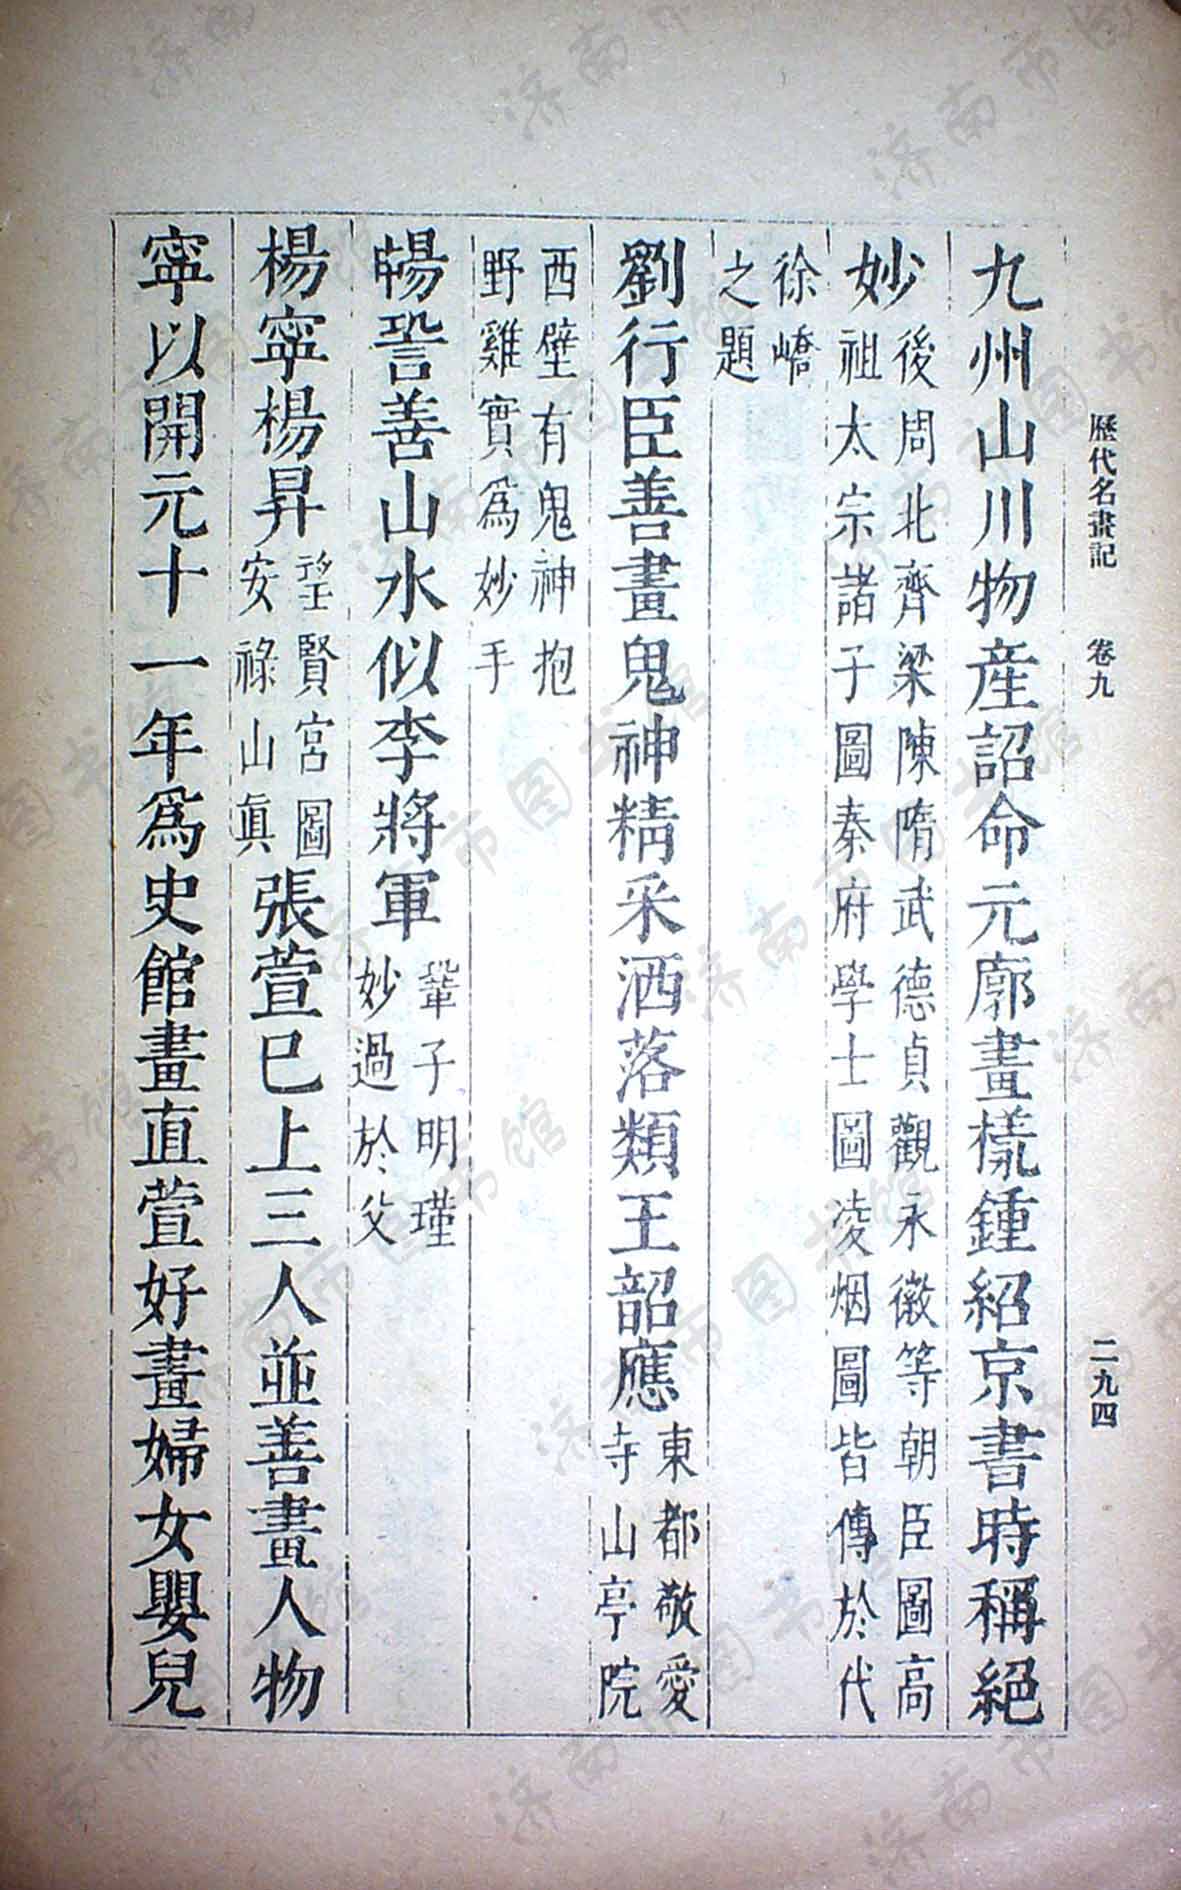 歷代名畫記　卷九　二九四
九州山川物産詔命元廓畫樣鍾紹京書時稱絕
妙後周北齊梁陳隋武德貞觀永徽等朝臣圖高
祖太宗諸子圖秦府學士圖凌烟圖皆傳於代
徐嶠
之題
劉行臣善畫鬼神精采洒落類王韶應東都敬愛
寺山亭院
西壁有鬼神抱
野雞實爲妙手
暢𧥺善山水似李將軍鞏子明瑾
妙過於父
楊寧楊昇望賢宮圖
安祿山眞
張萱已上三人並善畫人物
寧以開元十一年爲史館畫直萱好畫婦女嬰兒
济南市图书馆